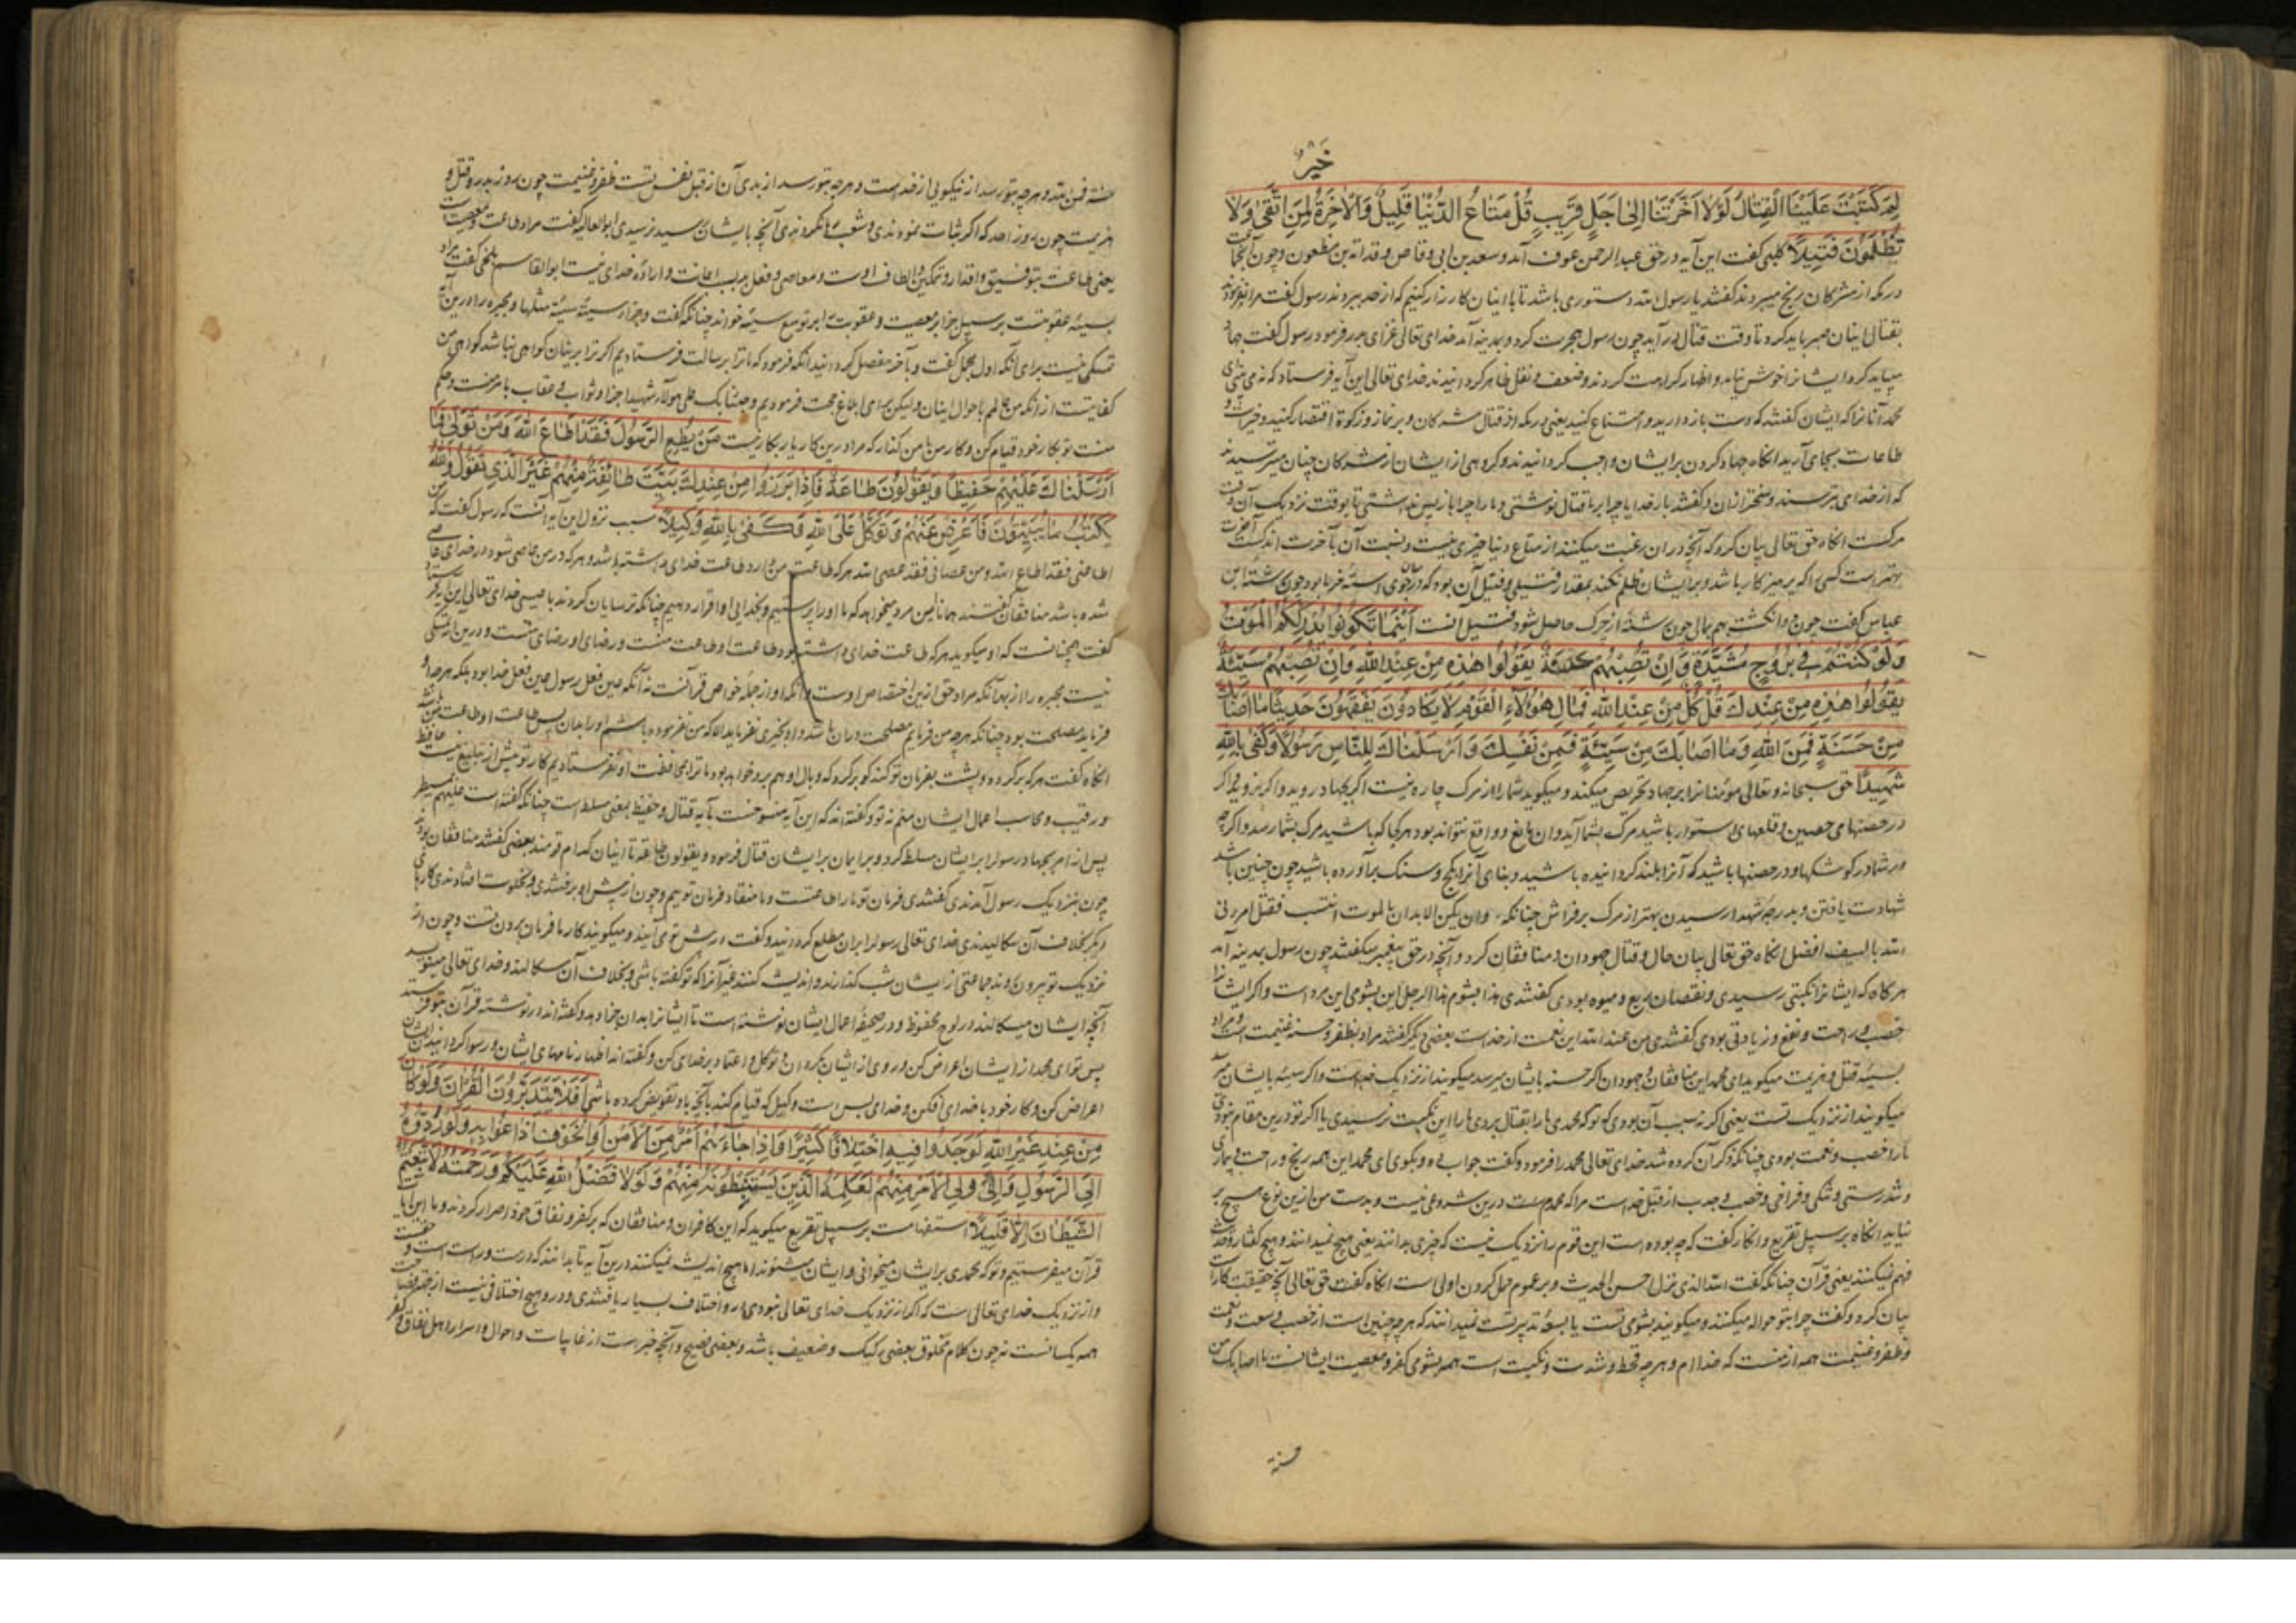 خَیْرٌ
لِمَ كَتَبْتَ عَلَيْنَا الْقِتَالَ لَوْلَا أَخَّرْتَنَا إِلَى أَجَلٍ قَرِيبٍ قُلْ مَتَاعُ الدُّنْيَا قَلِيلٌ وَالْآخِرَةُ لِمَنِ اتَّقَى وَلَا
تُظْلَمُونَ فَتِيلًا کلبی گفت این آیه در حق عبدالرحمن عوف آمد و سعد بن ابی وقاص و قدامة بن مظعون و چون
در مکه از مشرکان رنج میبردند گفتند یا رسول الله دستوری باشد تا با اینان کارزار کنیم که از حد ببردند رسول گفت مرا نفرمودند
بقتال اینان صبر باید کرد تا وقت قتال در آید چون رسول هجرت کرد و بمدینه آمد خدای تعالی غزای بدر فرمود رسول گفت جهاد
میباید کرد ایشانرا خوش نیامد و اظهار کراهت کردند و ضعف و نقل ظاهر کردانیدند خدای تعالی این آیه فرستاد که نمی بینی ای
محمد آنانرا که ایشان گفتند که دست باز دارید و امتناع کنید یعنی در مکه از قتال مشرکان و بر نماز و زکوة اقتصار کنید و
طاعات بجای آرید انکاه جهاد کردن بر ایشان واجب کردانیدند و کروهی از ایشان از مشرکان چنان میترسیدند
که از خدای بترسند و سختر از آن و گفتند بار خدایا چرا بر ما قتال نوشتی و ما را چرا باز پس نداشتی تا بوقت نزدیک آن وقت
مرکست انکاه حق تعالی بیان کرد که آنچه در آن رغبت میکنند از متاع دنیا چیزی نیست و نسبت آن با آخرت اندکست
بهتر است کسی را که پرهیزکار باشد و بر ایشان ظلم نکنند بمقدار فتیلی و فتیل آن بود که در جوی استه خرما بود چون رشته ابن
عباس گفت چون دو انکشت بهم بمالی چون رشته از چرک حاصل شود فتیل آنست أَيْنَمَا تَكُونُوا يُدْرِكْكُمُ الْمَوْتُ
وَلَوْ كُنْتُمْ فِي بُرُوجٍ مُشَيَّدَةٍ وَإِنْ تُصِبْهُمْ حَسَنَةٌ يَقُولُوا هَذِهِ مِنْ عِنْدِ اللَّهِ وَإِنْ تُصِبْهُمْ سَيِّئَةٌ
يَقُولُوا هَذِهِ مِنْ عِنْدِكَ قُلْ كُلٌّ مِنْ عِنْدِ اللَّهِ فَمَالِ هَؤُلَاءِ الْقَوْمِ لَا يَكَادُونَ يَفْقَهُونَ حَدِيثًا مَا أَصَابَكَ
مِنْ حَسَنَةٍ فَمِنَ اللَّهِ وَمَا أَصَابَكَ مِنْ سَيِّئَةٍ فَمِنْ نَفْسِكَ وَأَرْسَلْنَاكَ لِلنَّاسِ رَسُولًا وَكَفَى بِاللَّهِ
شَهِيدًا حق سبحانه و تعالی مؤمنانرا بر جهاد تحریص میکند و میکوید شما را از مرک چاره نیست اکر بجهاد روید و اکر نروید و اکر
در حصنهای حصین و قلعهای استوار باشید مرک بشما آید و آن مانع و واقع نتواند بود هر کجا که باشید مرک بشما رسد و اکرچه
شما در کوشکها و در حصنها باشید که آنرا بلند کردانیده باشید و بنای آنرا بکچ و سنک برآورده باشید چون چنین باشد
شهادت یافتن و بدرجه شهدا رسیدن بهتر از مرک بر فراش چنانکه و ان یکن الابدان للموت انشئت فقتل امرء فی
الله بالسیف افضل انکاه حق تعالی بیان حال و قتال جهودان و منافقان کرد و آنچه در حق پیغمبر میکفتند چون رسول بمدینه آمد
هرکاه که ایشانرا نکبتی رسیدی و نقصان ریع و میوه بودی گفتندی هذا بشوم هذا الرجل این بشومی این مرد است و اکر ایشانرا
خصب و راحت و نفع و زیادتی بودی گفتندی من عند الله این نعمت از خداست بعضی دیکر گفتند مراد بظفر و حسنه غنیمت است و مراد
بسیئه قتل و هزیمت میکوید ای محمد این منافقان و جهودان اکر حسنه بایشان میرسد میکویند از نزدیک خداست و اکر سیئه بایشان میرسد
میکویند از نزدیک تست یعنی اکر نه سبب آن بودی که تو که محمدی ما را بقتال بردی ما را این نکبت نرسیدی یا اکر تو درین مقام نبودی
ما را خصب و نعمت بودی چنانکه ذکر آن کرده شد خدای تعالی محمد را فرمود و گفت جواب ده و بکوی ای محمد این همه رنج و راحت و بیماری
و تندرستی و تنکی و فراخی و خصب و جدب از قبل خداست مرا که محمدم درین شروعی نیست و بدست من ازین نوع هیچ بر
نیاید انکاه بر سبیل تقریع و انکار گفت که چه بوده است این قوم را نزدیک نیست که چیزی بدانند یعنی هیچ نمیدانند و هیچ گفتار و حدیث
فهم نمیکنند یعنی قرآن چنانکه گفت الله الذی نزل احسن الحدیث و بر عموم حمل کردن اولی است انکاه گفت حق تعالی آنچه حقیقت کار است
بیان کرد و گفت چرا بتو حواله میکنند و میکویند بشومی تست یا بسوء تدبیر تست نمیدانند که هرچه چنین است از خصب و سعت و نعمت
و ظفر و غنیمت همه از منست که خداام و هرچه قحط و شدت و نکبت است همه بشومی کفر و معصیت ایشانست ما اصابک من
حسنة
حسنة فمن الله و هرچه بتو رسد از نیکویی از خداست و هرچه بتو رسد از بدی آن از قبل نفس تست ظفر و غنیمت چون روز بدر و قتل و
هزیمت چون روز احد که اکر ثبات نمودندی و شعب رها نکردندی آنچه بایشان رسید نرسیدی ابوالعالیه گفت مراد طاعت و معصیت است
یعنی طاعت بتوفیق و اقدار و تمکین و الطاف اوست و معاصی و فعل بد بسبب اعانت و اراده خدای نیست ابوالقاسم بلخی گفت مراد
بسیئه عقوبتست بر سبیل جزا بر معصیت و عقوبت را بر توسع سیئه خواند چنانکه گفت و جزاء سیئة سیئة مثلها و مجبره را درین آیة
تمسکی نیست برای آنکه اول مجمل گفت و بآخر مفصل کردانید انکه فرمود که ما ترا برسالت فرستادیم اکر ترا برینان کواهی نباشد کواهی من
کفایتست از آنکه من عالمم باحوال اینان و لیکن برای ابلاغ حجت فرمودیم وجئنا بک علی هؤلاء شهیدا جزا و ثواب و عقاب با منست و حکم
منست تو بکار خود قیام کن و کار من با من کذار که مراد درین کار یار بکار نیست مَنْ يُطِعِ الرَّسُولَ فَقَدْ أَطَاعَ اللَّهَ وَمَنْ تَوَلَّى فَمَا
أَرْسَلْنَاكَ عَلَيْهِمْ حَفِيظًا وَيَقُولُونَ طَاعَةٌ فَإِذَا بَرَزُوا مِنْ عِنْدِكَ بَيَّتَ طَائِفَةٌ مِنْهُمْ غَيْرَ الَّذِي تَقُولُ وَاللَّهُ
يَكْتُبُ مَا يُبَيِّتُونَ فَأَعْرِضْ عَنْهُمْ وَتَوَكَّلْ عَلَى اللَّهِ وَكَفَى بِاللَّهِ وَكِيلًا سبب نزول این آیه آنست که رسول گفت که من
اطاعنی فقد اطاع الله و من عصانی فقد عصی الله هرکه طاعت من دارد طاعت خدای داشته باشد و هرکه در من عاصی شود در خدای عاصی
شده باشد منافقان گفتند همانا این مرد میخواهد که ما او را پرستیم و بخدایی او اقرار دهیم چنانکه ترسایان کردند با عیسی خدای تعالی این آیه فرستاد
گفت همچنانست که او میکوید هرکه طاعت خدای داشته بود طاعت او طاعت منست و رضای او رضای منست و درین آیه تمسکی
نیست مجبره را از بهر آنکه مراد حق ازین اختصاص اوست و آنکه او از جمله خواص قرآنست نه آنکه عین فعل رسول عین فعل خدا بود بلکه هرچه او
فرماید مصلحت بود چنانکه هرچه من فرمایم مصلحت در آن باشد و او بچیزی نفرماید الا که من نفرموده باشم او را بدان پس طاعت او طاعت من باشد
انکاه گفت هرکه برکردد و پشت بفرمان تو کند کو برکرد که وبال او هم برو خواهد بود ما ترا بمحافظت او نفرستادیم کار تو بیش از تبلیغ نیست حافظ
و رقیب و محاسب اعمال ایشان منم نه تو و گفته اند که این آیه منسوخست بآیه قتال و حفیظ یعنی مسلط است چنانکه گفته است علیهم بمسیطر
پس از امر بجهاد رسول را بر ایشان مسلط کرد و بر ایشان قتال فرمود و یقولون طاعة تا اینان کدام قومند بعضی گفتند منافقان بودند
چون بنزدیک رسول آمدندی گفتندی فرمان تو ما را طاعتست و ما منقاد فرمان توییم و چون از پیش او برفتندی و بخلوت افتادندی کاری
دیکر بخلاف آن سکالیدندی خدای تعالی رسول را بر آن مطلع کردانید و گفت در پیش تو می آیند و میکویند کار ما فرمان بردن تست و چون از
نزدیک تو بیرون روند جماعتی از ایشان شب کذارند و اندیشه کنند غیر آنرا که تو گفته باشی و بخلاف آن سکالند و خدای تعالی مینویسد
آنچه ایشان میسکالند در لوح محفوظ و در صحیفه اعمال ایشان نوشته است تا ایشانرا بدان جزا دهد و گفته اند در نوشته قرآن بتو فرستد
پس تو ای محمد از ایشان اعراض کن و روی از ایشان بکردان و توکل و اعتماد بر خدای کن و گفته اند اظهار نامهای ایشان و رسوا کردانیدن ایشان
اعراض کن و کار خود با خدای افکن و خدای بس است وکیل که قیام کند بآنچه باو تفویض کرده باشی أَفَلَا يَتَدَبَّرُونَ الْقُرْآنَ وَلَوْ كَانَ
مِنْ عِنْدِ غَيْرِ اللَّهِ لَوَجَدُوا فِيهِ اخْتِلَافًا كَثِيرًا وَإِذَا جَاءَهُمْ أَمْرٌ مِنَ الْأَمْنِ أَوِ الْخَوْفِ أَذَاعُوا بِهِ وَلَوْ رَدُّوهُ
إِلَى الرَّسُولِ وَإِلَى أُولِي الْأَمْرِ مِنْهُمْ لَعَلِمَهُ الَّذِينَ يَسْتَنْبِطُونَهُ مِنْهُمْ وَلَوْلَا فَضْلُ اللَّهِ عَلَيْكُمْ وَرَحْمَتُهُ لَاتَّبَعْتُمُ
الشَّيْطَانَ إِلَّا قَلِيلًا استفهامست بر سبیل تقریع میکوید که این کافران و منافقان که بر کفر و نفاق خود اصرار کردند و ما این
قرآن میفرستیم و تو که محمدی بر ایشان میخوانی و ایشان میشنوند اما هیچ اندیشه نمیکنند درین آیه تا بدانند که درست و راست است و
و از نزدیک خدای تعالی است که اکر از نزدیک خدای تعالی نبودی درو اختلاف بسیار یافتندی و درو هیچ اختلافی نیست از
همه یکسانست نه چون کلام مخلوق بعضی رکیک و ضعیف باشد و بعضی فصیح و آنچه خبر است از غایبات و احوال و اسرار اهل نفاق و کفر